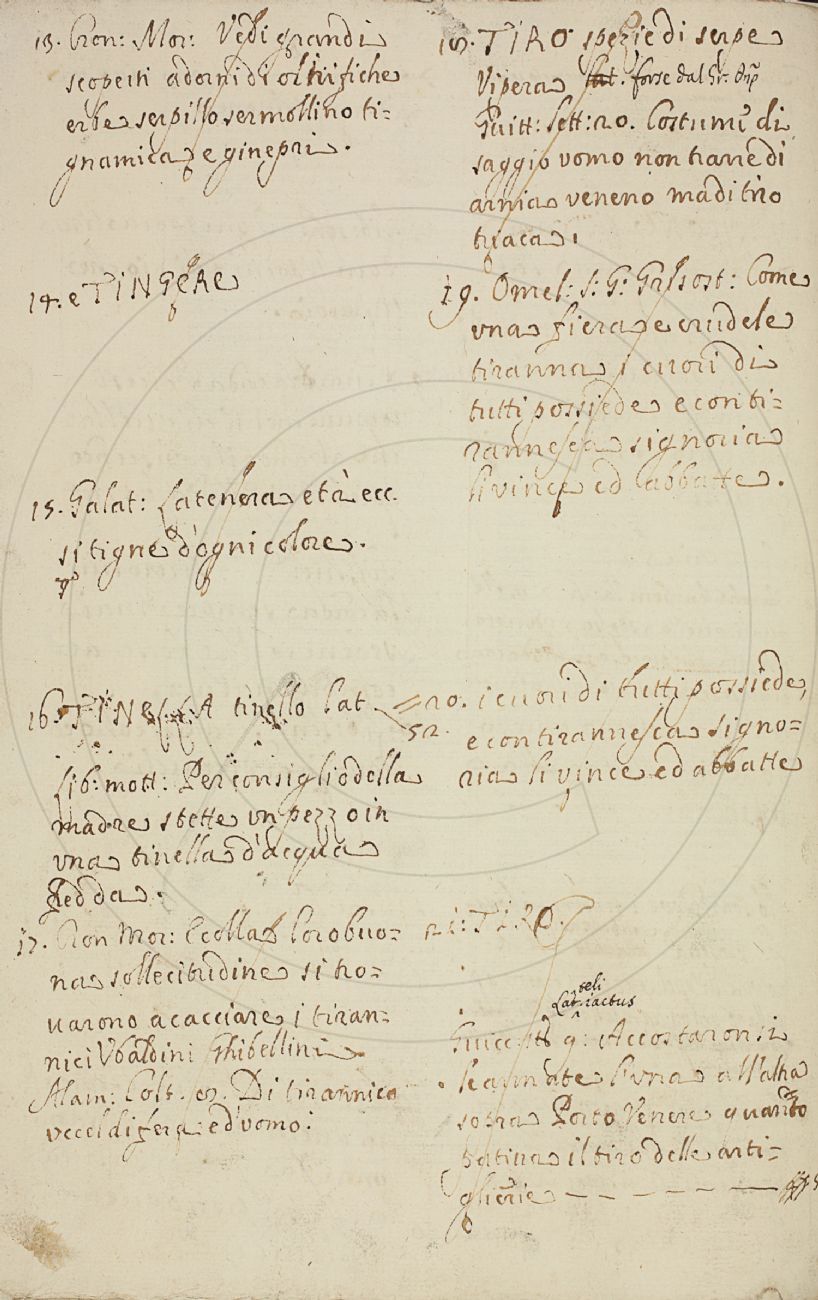 13. Cron: Mor: Vedi grandi
scoperti adorni di oltrifiche
erbe serpillo sermollino ti-
gnamica e ginepri.
14. e TINGERE
15. Galat: La tenera età ecc.
si tigne d'ogni colore.
16. TINELLA tinello Lat.
Lib: mott: Per consiglio della
madre stette un pezzo in
una tinella d'acqua
fredda.
17. Cron Mor: E colla loro buo=
na sollecitudine si tro=
varono a cacciare i tiran=
nici Ubaldini Ghibellini
Alam: Colt. Di tirannico
uccel di fera ed uomo:
18. TIRO spezie di serpe
Vipera Lat. forse dal Gr.
Guitt: Lett: 20. Costume di
saggio vomo non trarre di
armia veneno ma di tiro
triaca.
19. Omel: S: G: Grisost: Come
una fiera e crudele
tiranna i cuori di
tutti possiede e con ti=
rannesca signoria
li vince ed abbatte.
=20. i cuori di tutti possiede,
52.
e con tirannesca signo=
ria li vince ed abbatte
21: TIRO.
Lat. teli iactus
Guicc: Accostaronsi
le armate l'una all'altra
sopra Porto Venere quanto
pativa il tiro delle arti=
glierie — — — — —